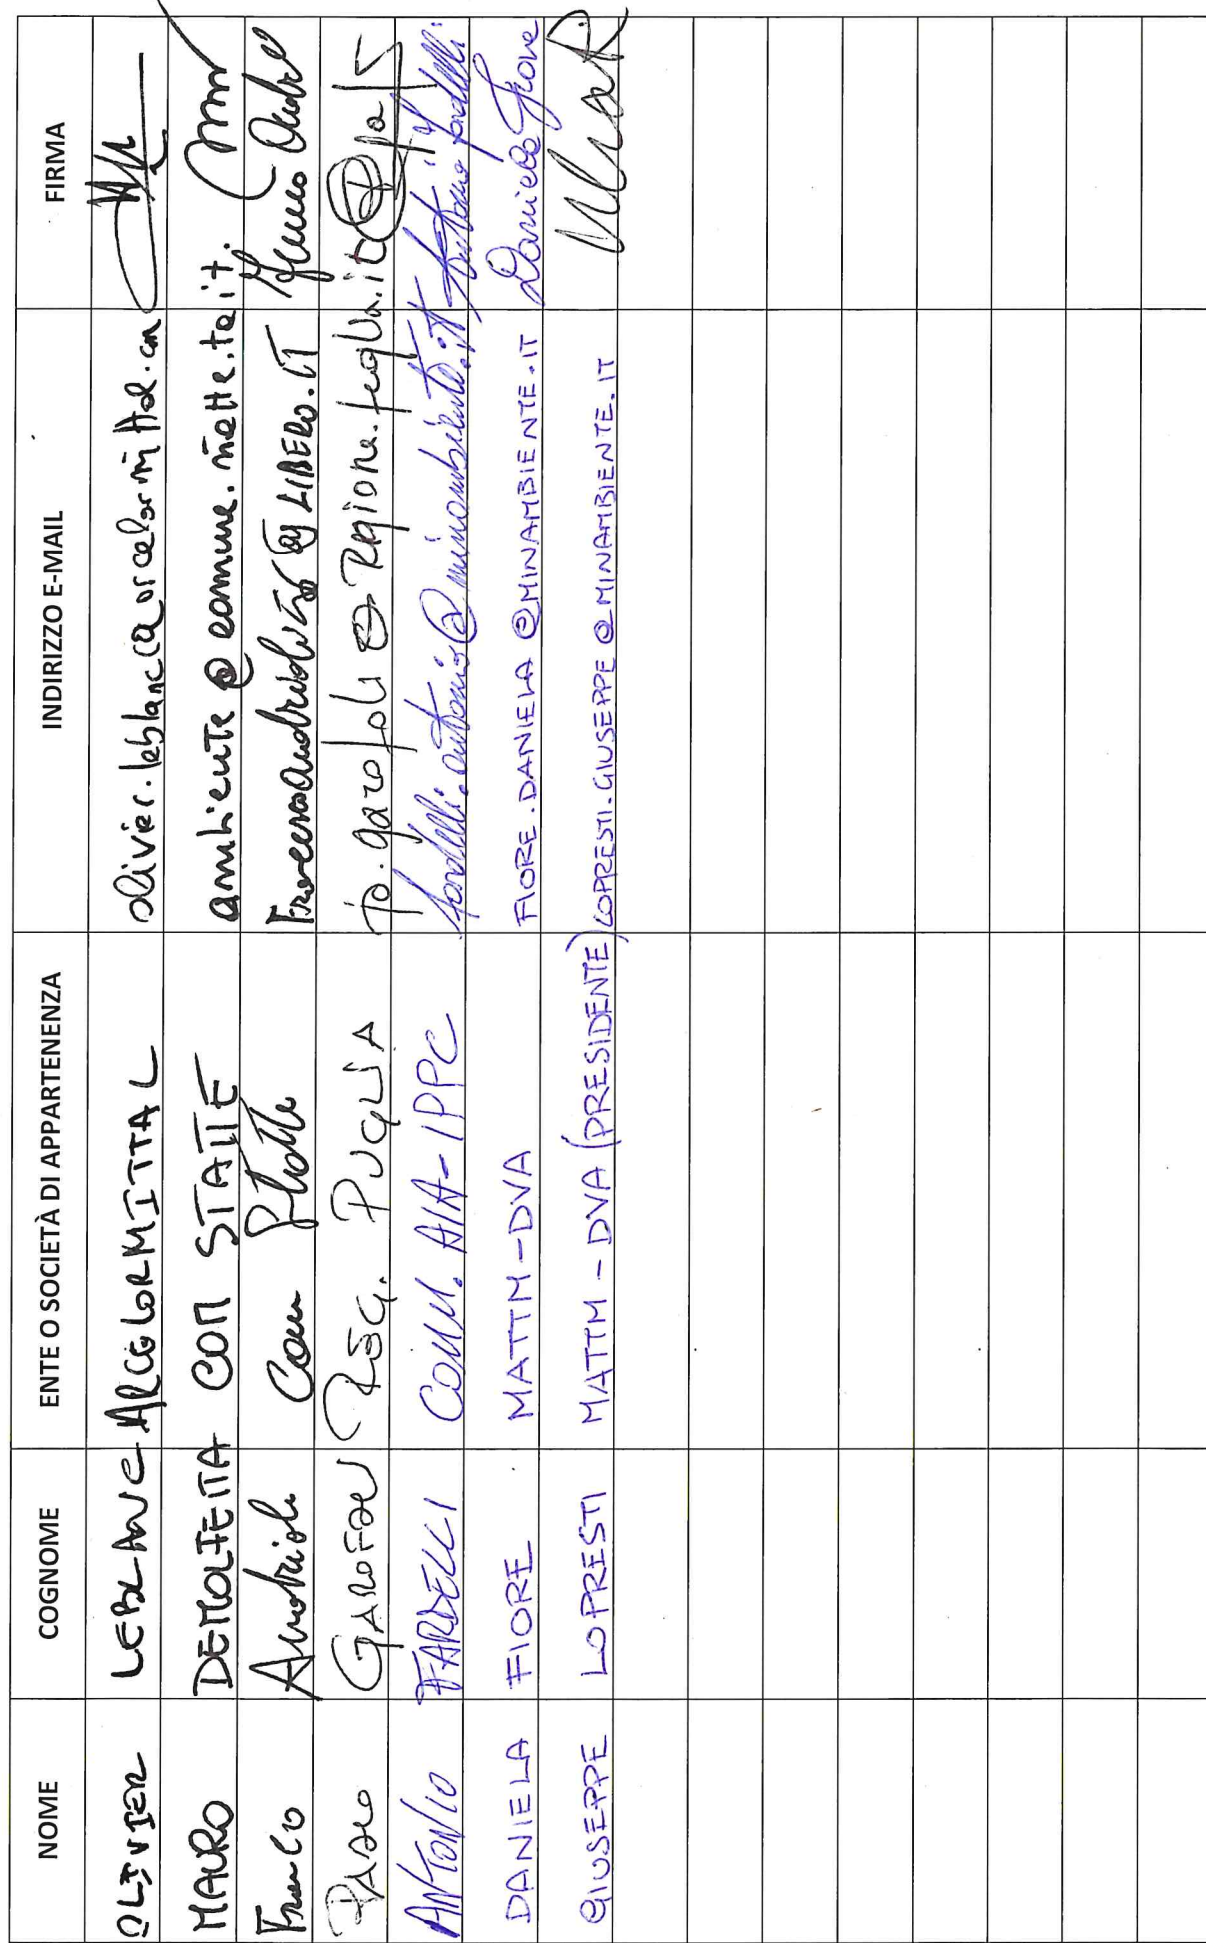 NOME COGNOME ENTE O SOCIETÀ DI APPARTENENZA INDIRIZZO E-MAIL FIRMA
OLIVIER LEBLANC ARCELORMITTAL olivier.leblanc@arcelormittal.com
MAURO DEMOLFETTA COM STATTE ambiente@comune.statte.ta.it.
Franco Andrioli Com Statte
PAOLO GAROFOLI REG. PUGLIA p.garofoli@regione.puglia.it
ANTONIO FARDELLI COMM. AIA-IPPC fardelli.antonio@minambiente.it Antonio Fardelli
DANIELA FIORE MATTM-DVA FIORE.DANIELA@MINAMBIENTE.IT Daniela Fiore
GIUSEPPE LOPRESTI MATTM-DVA (PRESIDENTE) LOPRESTI.GIUSEPPE@MINAMBIENTE.IT